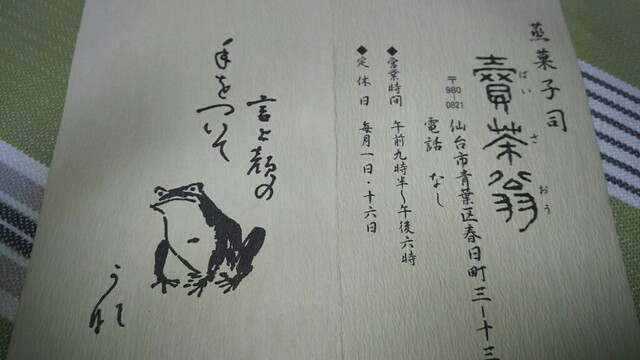 蒸菓子司
賣茶翁
ばいさおう
〒980-0821
仙台市青葉区春日町三ー十三
電話 なし
◆営業時間 午前九時半〜午後六時
◆定休日 毎月一日・十六日
手をついて
言上顔の